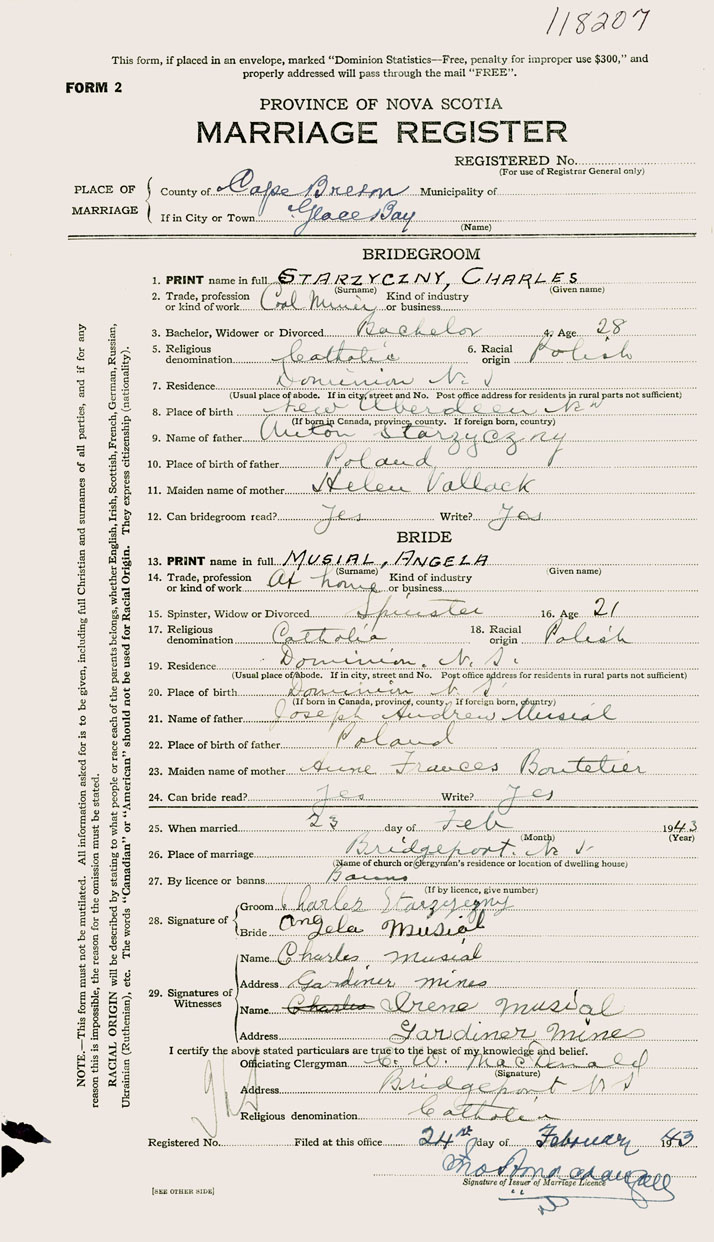 118207
This form, if placed in an envelope, marked “Dominion Statistics—Free, penalty for improper use $300,” and
properly addressed will pass through the mail “FREE”.
FORM 2
PROVINCE OF NOVA SCOTIA
MARRIAGE REGISTER
REGISTERED No.
(For use of Registrar General only)
PLACE OF MARRIAGE
County of Cape Breton Municipality of
If in City or Town Glace Bay
(Name)
BRIDEGROOM
1. PRINT name in full STARZYCZNY, CHARLES
(Surname) (Given name)
2. Trade, profession or kind of work Coal Miner Kind of industry or business
3. Bachelor, Widower or Divorced Bachelor 4. Age 28
5. Religious denomination Catholic 6. Racial origin Polish
7. Residence Dominion N. S
(Usual place of abode. If in city, street and No. Post office address for residents in rural parts not sufficient)
8. Place of birth New Aberdeen N S
(If born in Canada, province, county. If foreign born, country)
9. Name of father Anton Starzyczny
10. Place of birth of father Poland
11. Maiden name of mother Helen Vallack
12. Can bridegroom read? Yes Write? Yes
BRIDE
13. PRINT name in full MUSIAL, ANGELA
(Surname) (Given name)
14. Trade, profession or kind of work At home Kind of industry or business
15. Spinster, Widow or Divorced Spinster 16. Age 21
17. Religious denomination Catholic 18. Racial origin Polish
19. Residence Dominion. N. S.
(Usual place of abode. If in city, street and No. Post office address for residents in rural parts not sufficient)
20. Place of birth Dominion N S
(If born in Canada, province, county. If foreign born, country)
21. Name of father Joseph Andrew Musial
22. Place of birth of father Poland
23. Maiden name of mother Anne Frances Boutelier
24. Can bride read? Yes Write? Yes
25. When married 23 day of Feb 1943
(Month) (Year)
26. Place of marriage Bridgeport. N S
(Name of church or clergyman's residence or location of dwelling house)
27. By licence or banns Banns
(If by licence, give number)
28. Signature of
Groom Charles Starzyczny
Bride Angela Musial
29. Signatures of Witnesses
Name Charles Musial
Address Gardiner mines
Name Charles Irene Musial
Address Gardiner Mines
I certify the above stated particulars are true to the best of my knowledge and belief.
Officiating Clergyman C. W. MacDonald
(Signature)
Address Bridgeport N S
Religious denomination Catholic
Registered No. Filed at this office 24th day of February 1943
Signature of Issuer of Marriage Licence
[SEE OTHER SIDE]
NOTE.—This form must not be mutilated. All information asked for is to be given, including full Christian and surnames of all parties, and if for any
reason this is impossible, the reason for the omission must be stated.
RACIAL ORIGIN will be described by stating to what people or race each of the parents belongs, whether English, Irish, Scottish, French, German, Russian,
Ukrainian (Ruthenian), etc. The words “Canadian” or “American” should not be used for Racial Origin. They express citizenship (nationality).